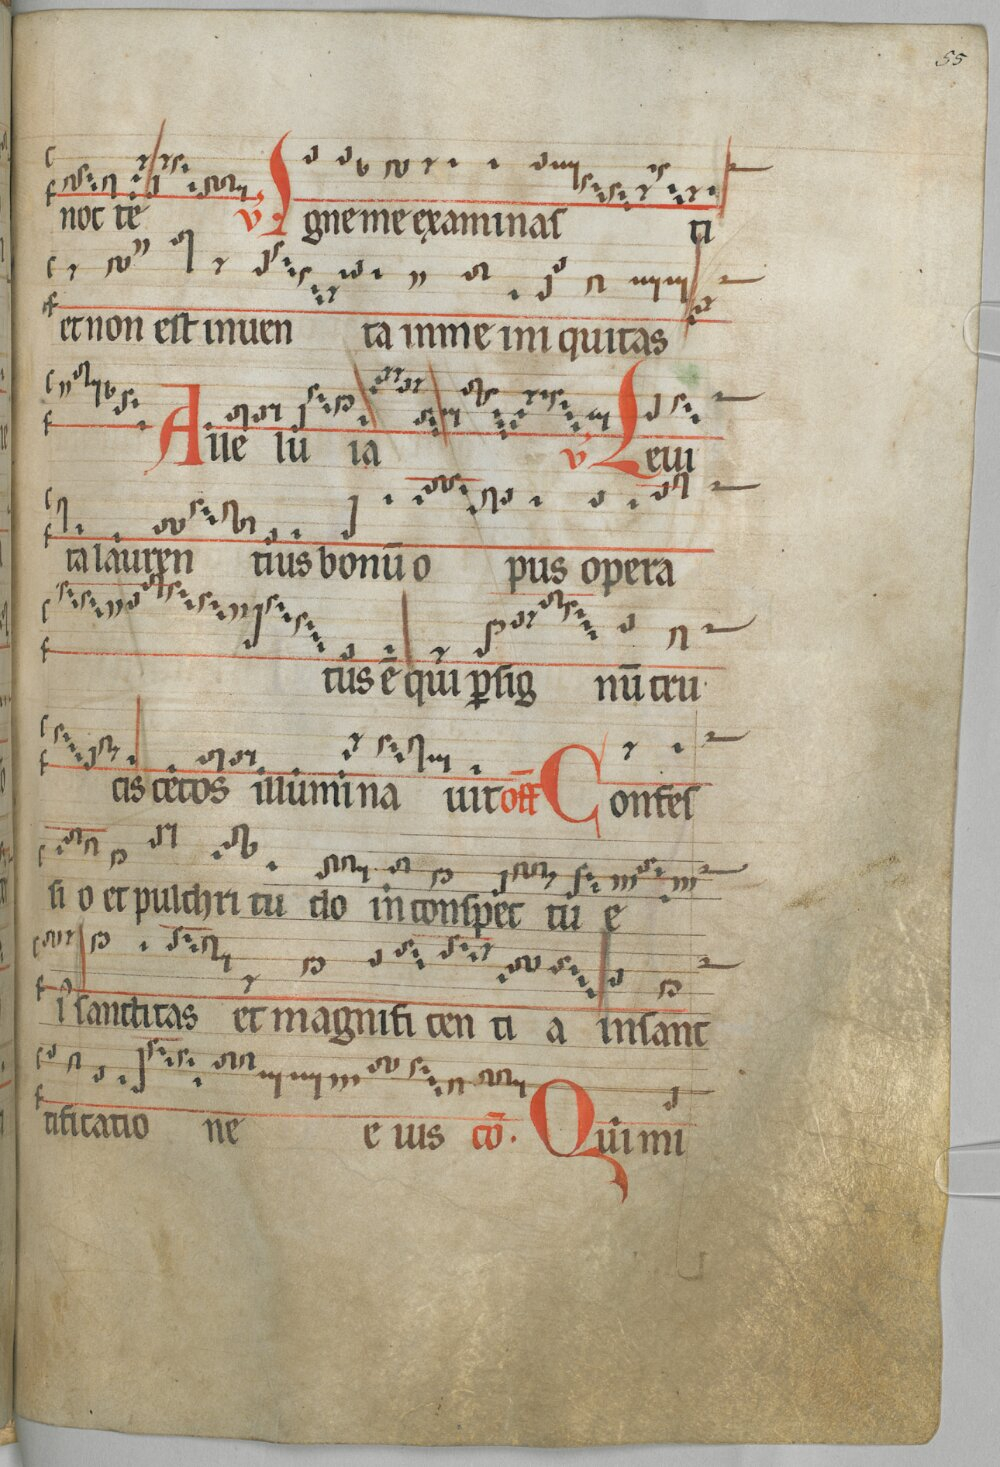 55
noc te v Igne me examinas ti
et non est inuen ta in me ini quitas
Alle lu ia v Leui
ta lauren tius bonū o pus opera
tus ē qui ꝑ sig nū cru
cis cecos illumina uit off Confes
si o et pulchri tu do in conspec tu e
i sanctitas et magnifi cen ti a in sanc
tificatio ne e ius cō. Qui mi